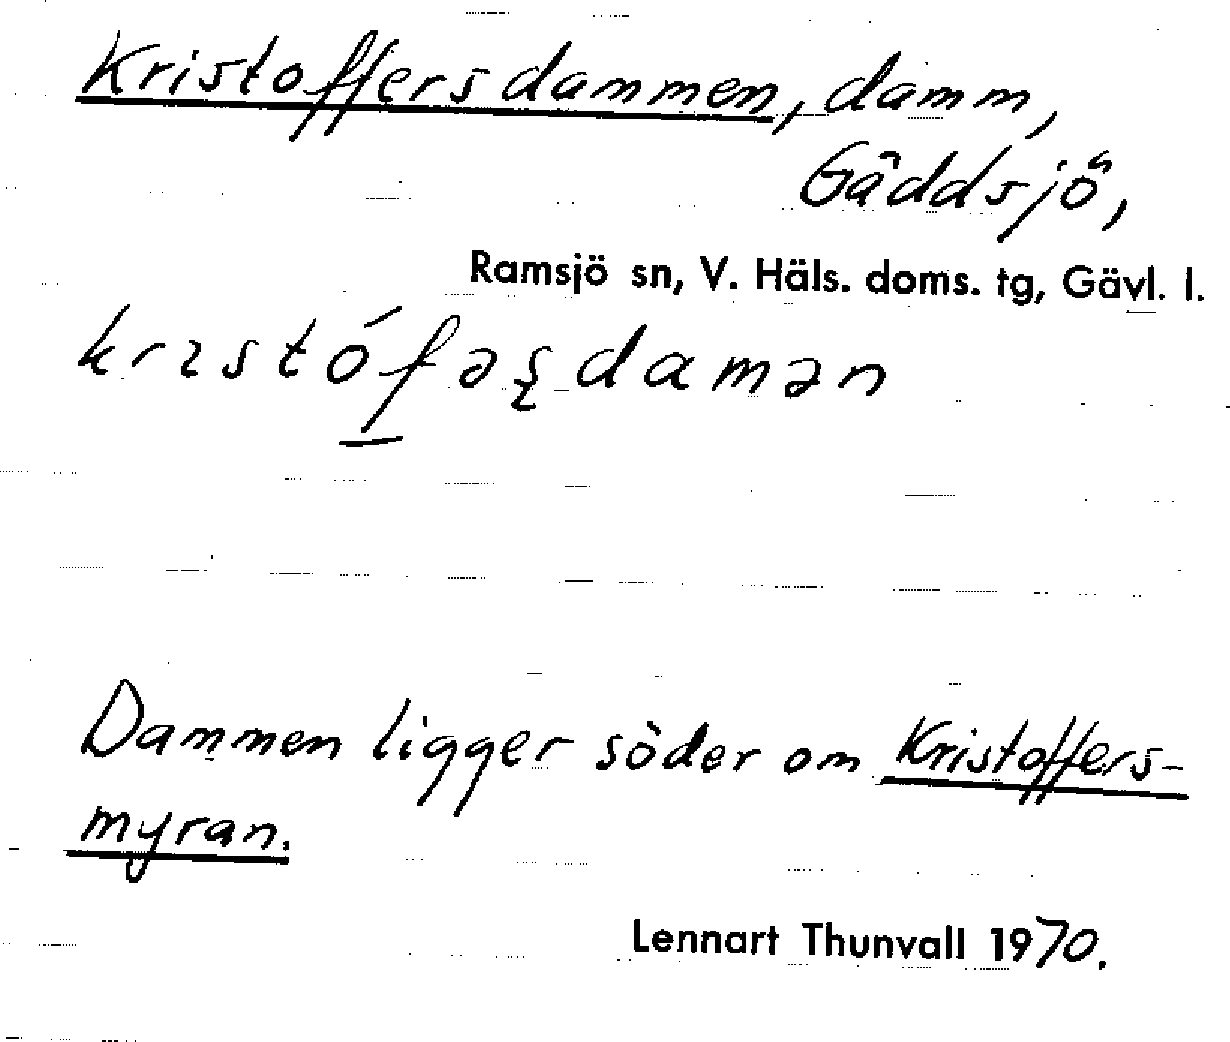 Kristoffersdammen, damm,
Gäddsjö,
Ramsjö sn, V. Häls. doms. tg, Gävl. l.
krɪstófəʂdamən
Dammen ligger söder om Kristoffers-
myran.
Lennart Thunvall 1970.